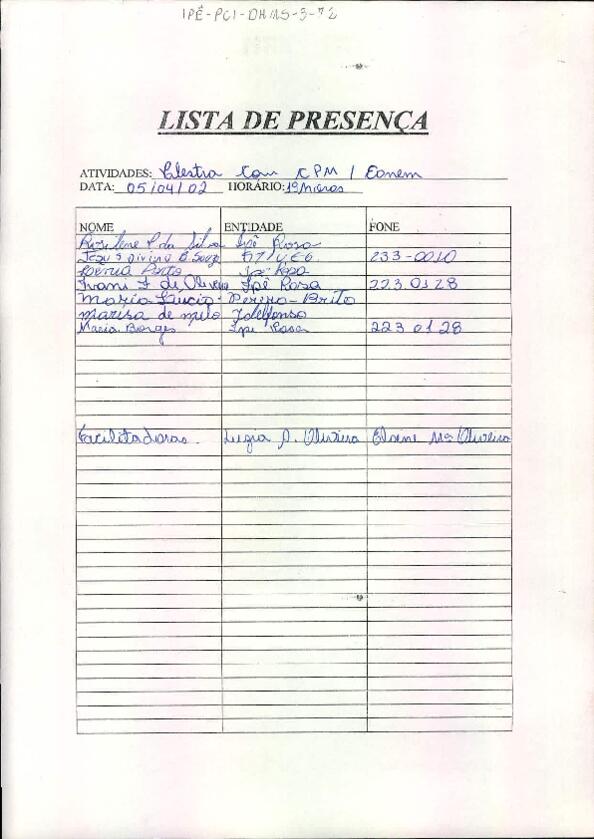 IPÊ-PCI-DHMS-3-72
LISTA DE PRESENÇA
ATIVIDADES: Palestra Com CPM / Conem
DATA: 05/04/02 HORÁRIO: 19 horas
NOME ENTIDADE FONE
P. da Silva Ipê Rosa
Jesus Divino B. Souza 233-0010
Porto Ipê Rosa
Ivani F de Oliveira Ipê Rosa 223 01 28
Maria Lúcia Pereira - Brito
Marisa de melo Idelfonso
Maria Borges Ipe Rosa 223 01 28
Facilitadoras. Lugia A. Oliveira Elaene Mª Oliveira